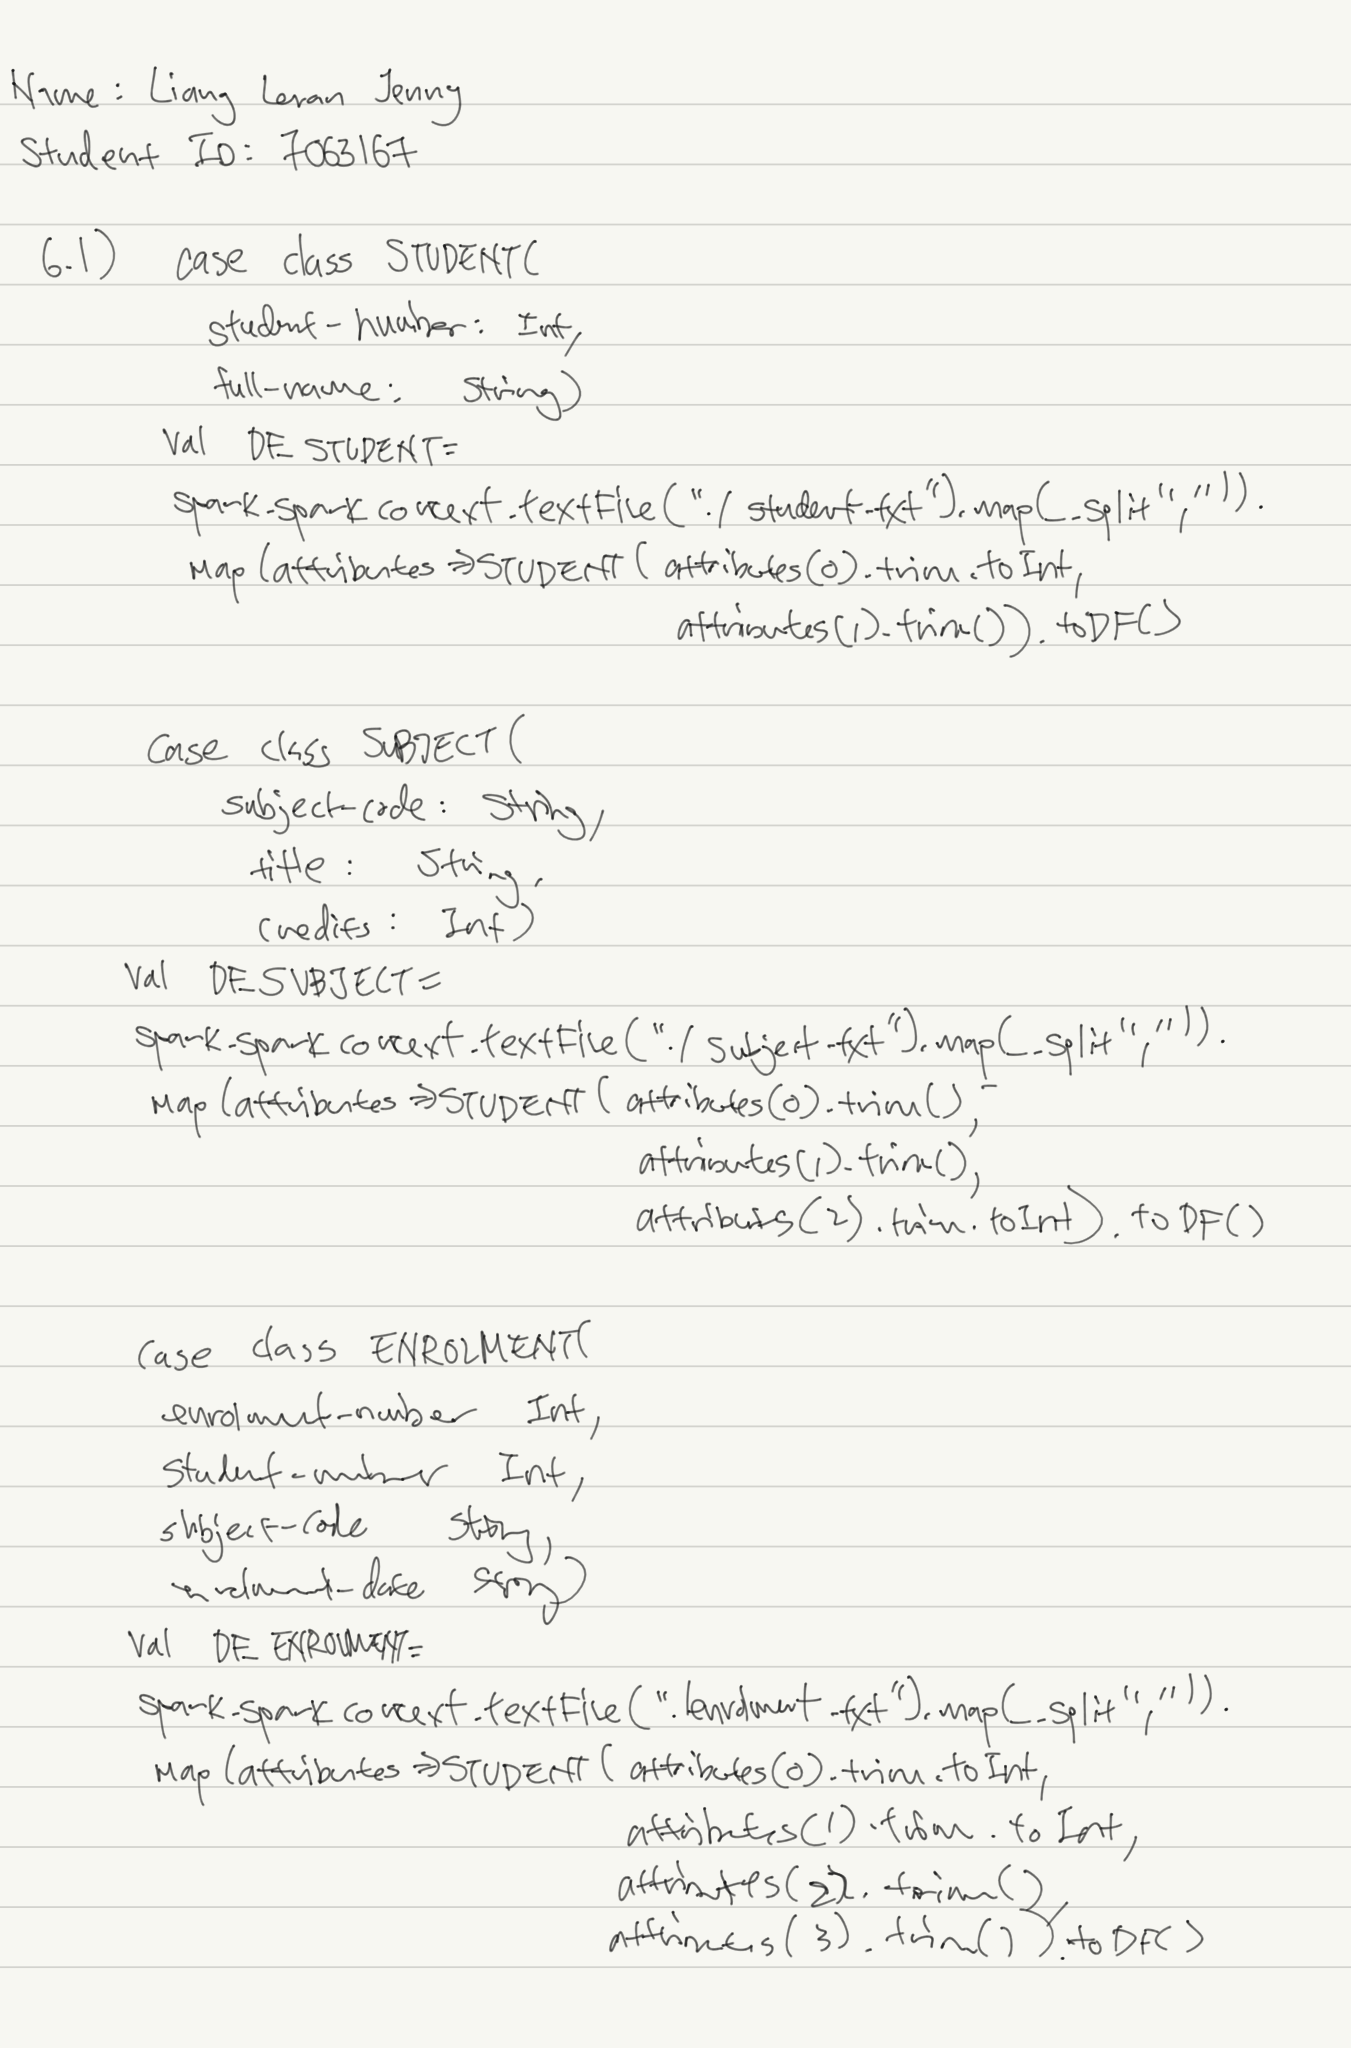 Name: Liang Leran Jenny
Student ID: 7063167
6.1) case class STUDENT(
student-number: Int,
full-name: String)
Val DF_STUDENT=
spark.spark context.textFile("./student.txt").map(_.split",")).
Map(attributes=>STUDENT(attributes(0).trim.toInt,
attributes(1).trim()).toDF()
Case class SUBJECT(
subject-code: String,
title: String,
credits: Int)
Val DF_SUBJECT=
spark.spark context.textFile("./subject.txt").map(_.split",")).
Map(attributes=>STUDENT(attributes(0).trim(),
attributes(1).trim(),
attributes(2).trim.toInt).toDF()
Case class ENROLMENT(
enrolment-number Int,
Student-number Int,
subject-code String,
enrolment-date String)
Val DF_ENROLMENT=
spark.spark context.textFile("./enrolment.txt").map(_.split",")).
Map(attributes=>STUDENT(attributes(0).trim.toInt,
attributes(1).trim.toInt,
attributes(2).trim(),
attributes(3).trim()).toDF()